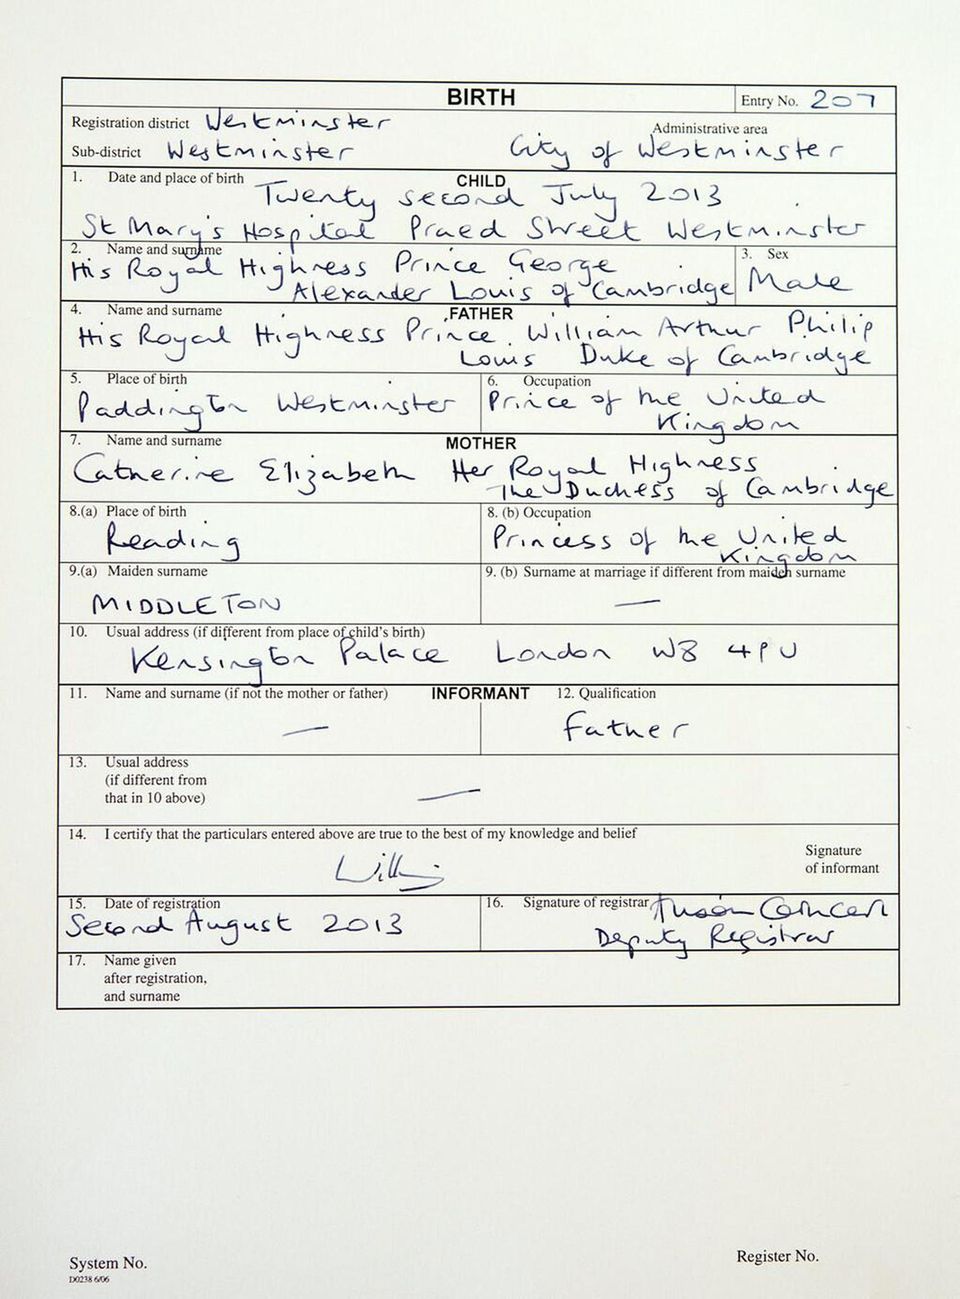 BIRTH
Entry No. 207
Registration district Westminster
Administrative area
Sub-district Westminster
City of Westminster
1. Date and place of birth
CHILD
Twenty second July 2013
St Mary's Hospital Praed Street Westminster
2. Name and surname
3. Sex
His Royal Highness Prince George
Alexander Louis of Cambridge
Male
4. Name and surname
FATHER
His Royal Highness Prince William Arthur Philip
Louis Duke of Cambridge
5. Place of birth
6. Occupation
Paddington Westminster
Prince of the United
Kingdom
7. Name and surname
MOTHER
Catherine Elizabeth Her Royal Highness
The Duchess of Cambridge
8.(a) Place of birth
8. (b) Occupation
Reading
Princess of the United
Kingdom
9.(a) Maiden surname
9. (b) Surname at marriage if different from maiden surname
MIDDLETON
—
10. Usual address (if different from place of child's birth)
Kensington Palace London W8 4PU
11. Name and surname (if not the mother or father)
INFORMANT
12. Qualification
—
Father
13. Usual address
(if different from
that in 10 above)
—
14. I certify that the particulars entered above are true to the best of my knowledge and belief
Signature
of informant
15. Date of registration
16. Signature of registrar
Second August 2013
Deputy Registrar
17. Name given
after registration,
and surname
System No.
Register No.
D0238 6/06